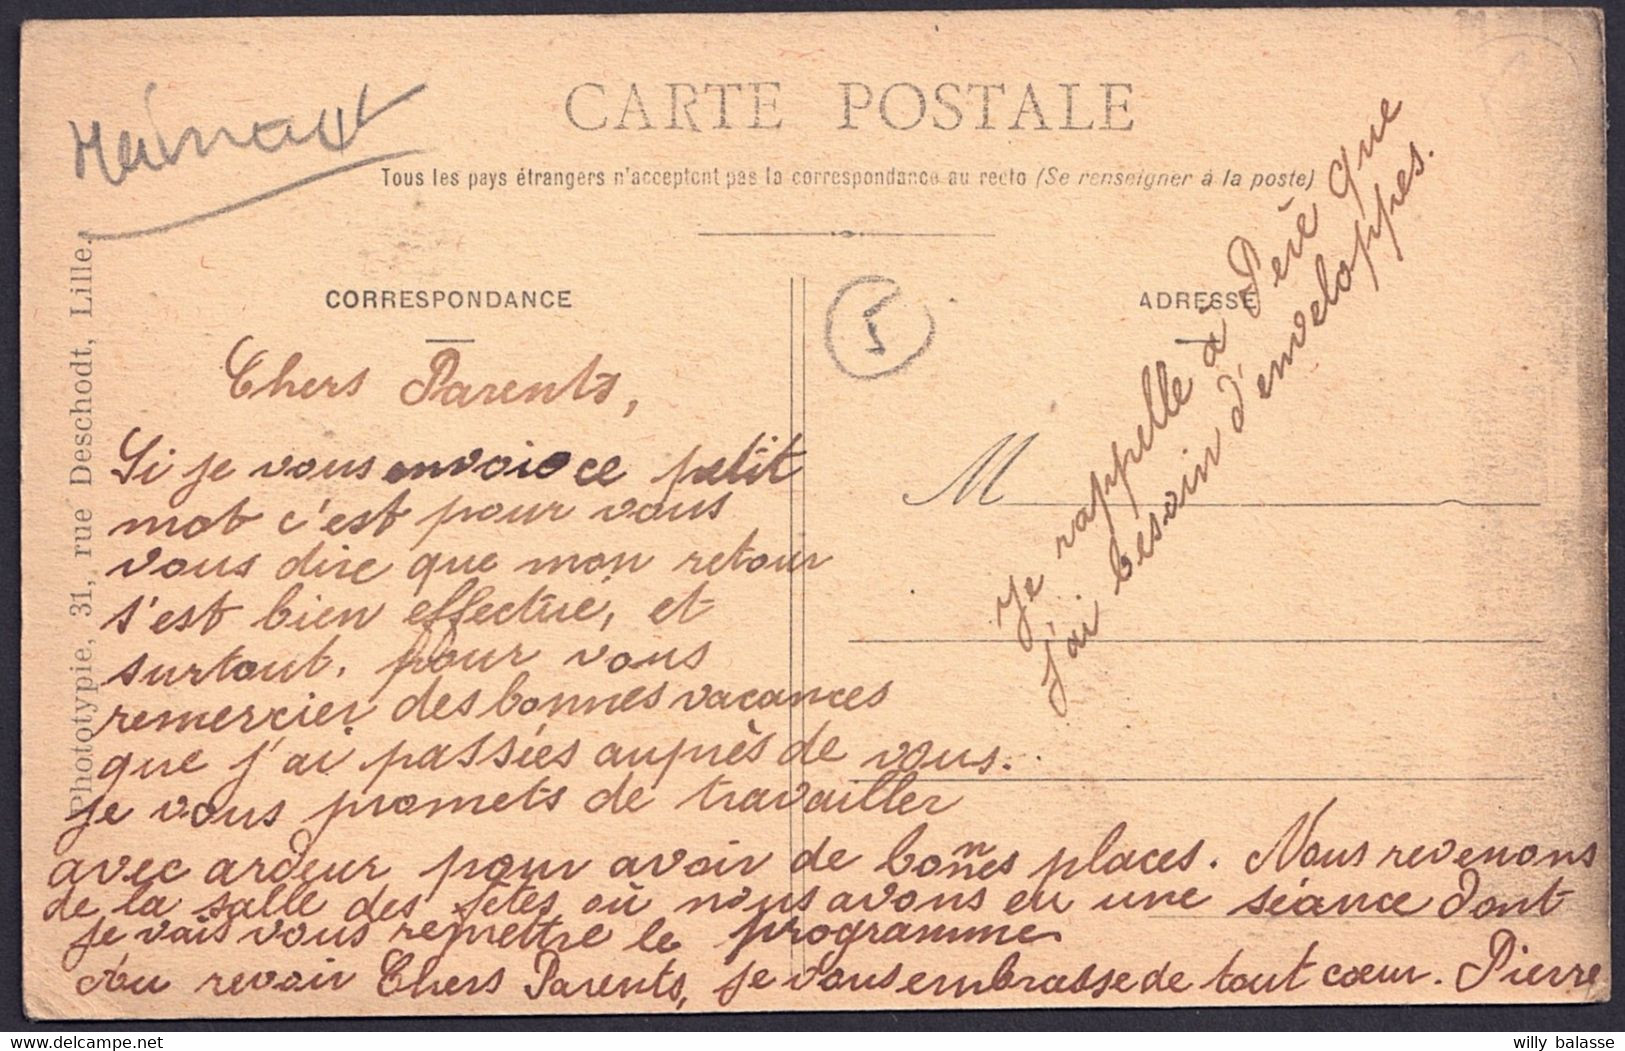 Hainaut
CARTE POSTALE
Tous les pays étrangers n'acceptent pas la correspondance au recto (Se renseigner à la poste)
Phototypie, 31, rue Deschodt, Lille.
CORRESPONDANCE
ADRESSE
5
M
Chers Parents,
Si je vous envoie ce petit
mot c'est pour vous
vous dire que mon retour
s'est bien effectué, et
surtout, pour vous
remercier des bonnes vacances
que j'ai passées auprès de vous.
je vous promets de travailler
avec ardeur pour avoir de bonnes places. Nous revenons
de la salle des fêtes où nous avons eu une séance dont
je vais vous remettre le programme
Au revoir Chers Parents, je vous embrasse de tout cœur. Pierre
Je rappelle à Père que
j'ai besoin d'enveloppes.
willy balasse